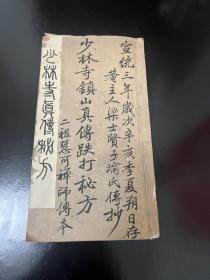 宣統三年歲次辛亥季夏朔日存
黃主人梁士賢子瑜氏傳抄
少林寺鎮山真傳跌打秘方
二祖慧可禪師傳本
少林寺真傳秘方